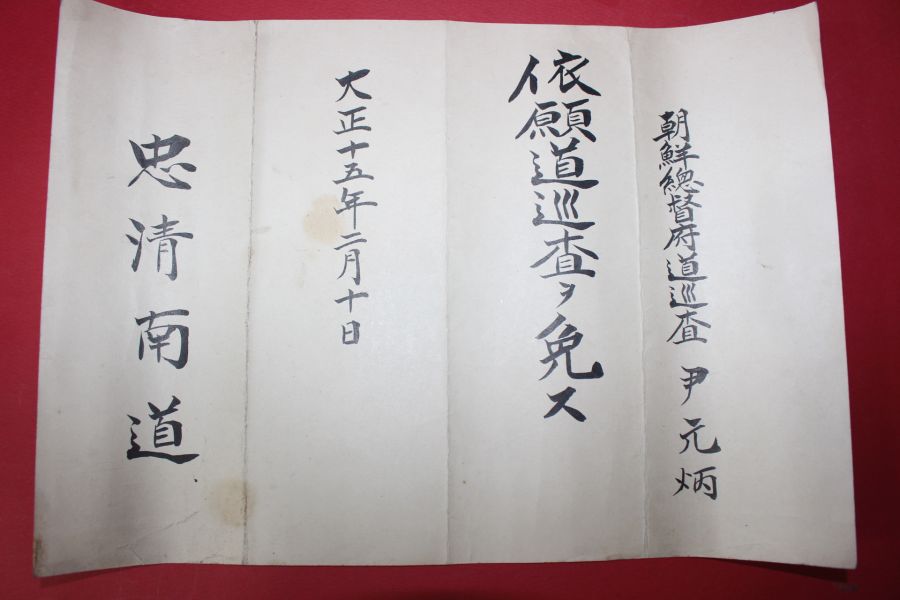 朝鮮總督府道巡査 尹元炳
依願道巡査ヲ免ス
大正十五年二月十日
忠清南道